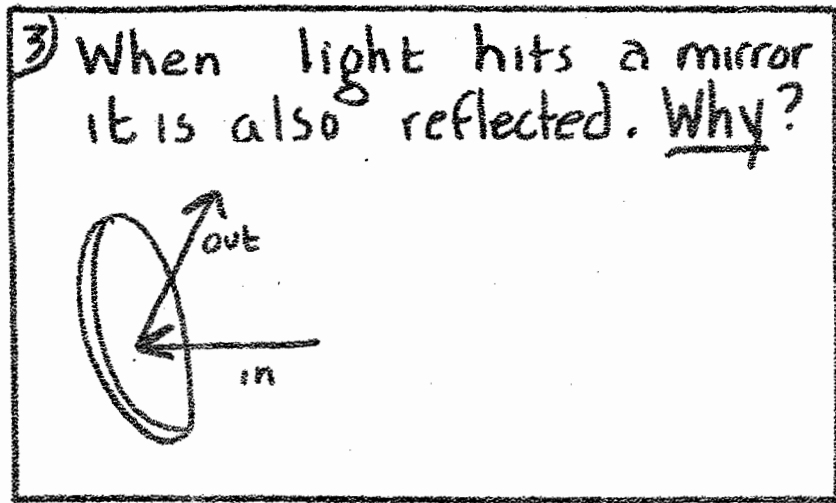 3) When light hits a mirror
it is also reflected. Why?
out
in